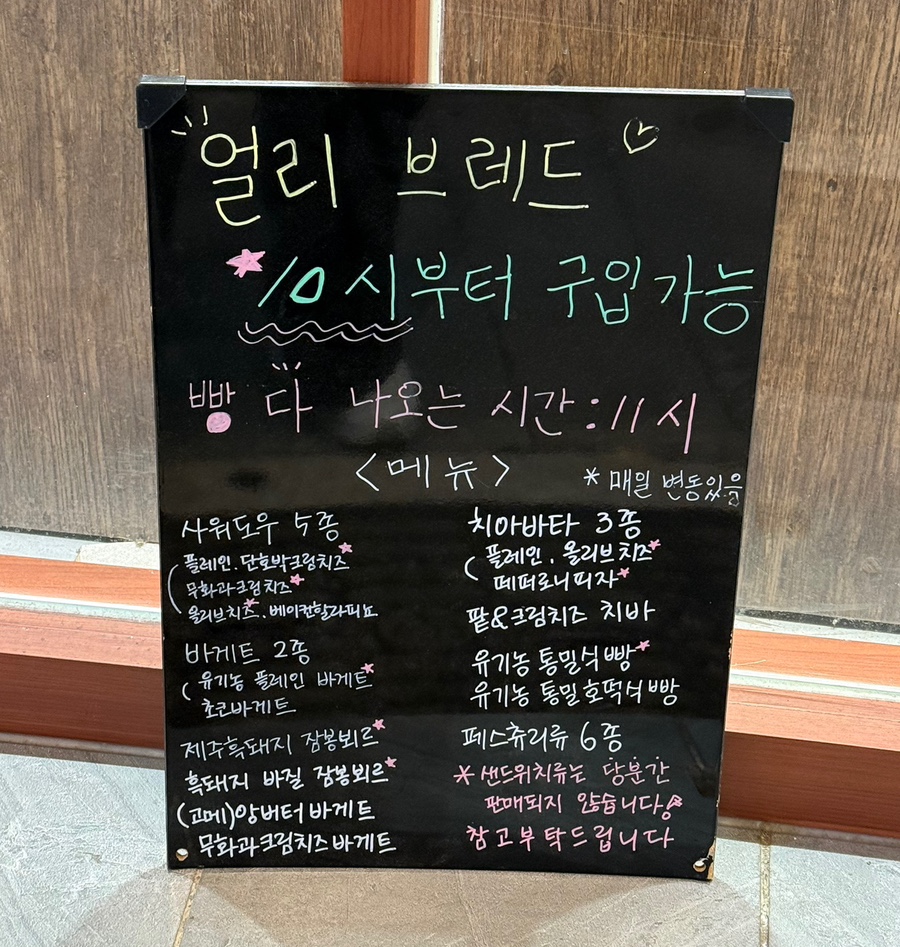 얼리 브레드
10시부터 구입가능
빵 다 나오는 시간:11시
<메뉴>
* 매일 변동있음
사워도우 5종
(플레인.단호박크림치즈
무화과크림치즈
올리브치즈.베이컨할라피뇨
바게트 2종
(유기농 플레인 바게트
초코바게트
제주흑돼지 잠봉뵈르
흑돼지 바질 잠봉뵈르
(고메)앙버터바게트
무화과크림치즈바게트
치아바타 3종
(플레인.올리브치즈
페퍼로니피자
팥&크림치즈 치바
유기농통밀식빵
유기농통밀호떡식빵
페스츄리류 6종
*샌드위치류는 당분간
판매되지 않습니다
참고부탁드립니다